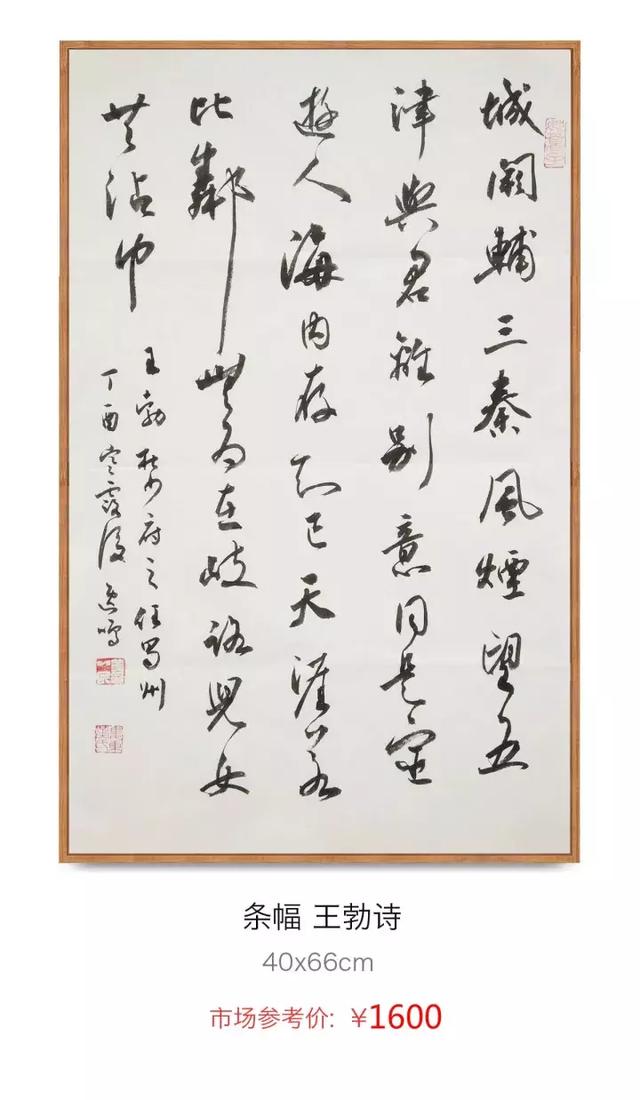 城闕輔三秦風煙望五
津與君離別意同是宦
遊人海内存知己天涯若
比鄰無為在岐路兒女
共沾巾
王勃杜少府之任蜀州
丁酉寒露後逸鳴
条幅 王勃诗
40x66cm
市场参考价: ¥1600